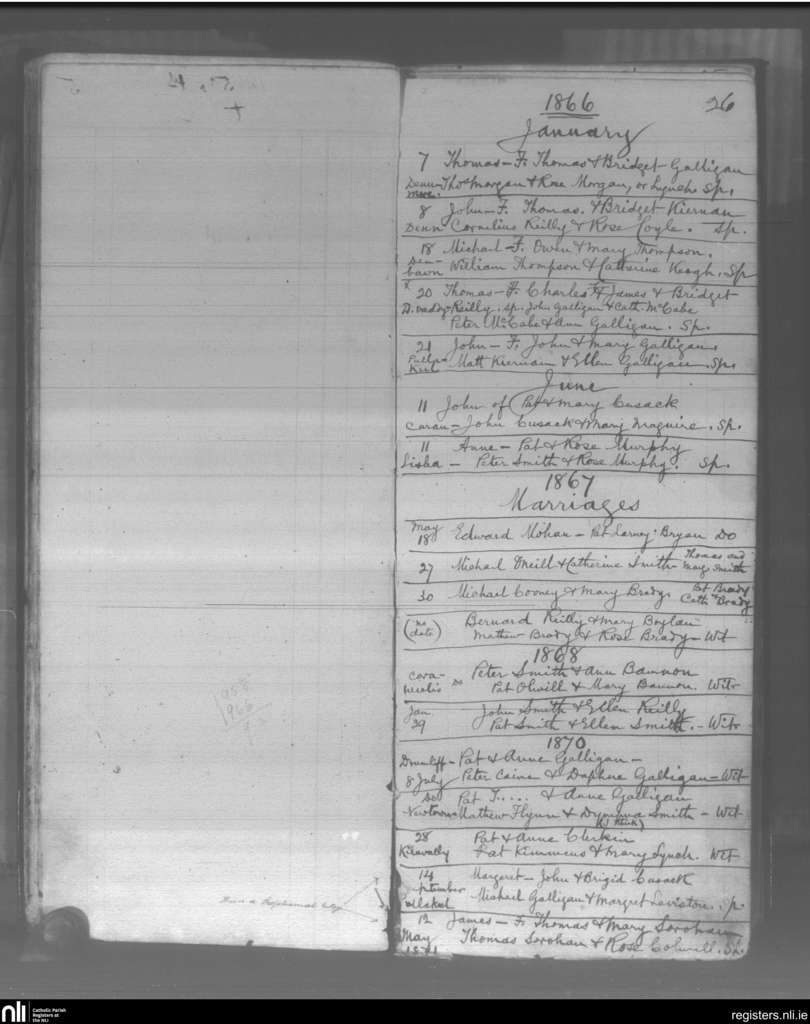 1866 26
January
7 Thomas - F. Thomas & Bridget Galligan
Denn Thos Morgan & Rose Morgan, or Lynch. Sp.
8 John - F. Thomas. & Bridget Kiernan
Denn Cornelius Reilly & Rose Coyle. Sp.
18 Michael - F. Owen & Mary Thompson.
William Thompson & Catherine Keogh. Sp
x 20 Thomas - F. Charles & James & Bridget
Reilly. Sp. John Galligan & Cath. McCabe
Peter McCabe & Ann Galligan. Sp.
21 John - F. John & Mary Galligan.
Matt Kiernan & Ellen Galligan. Sp.
June
11 John of Pat & Mary Cusack
Caran - John Cusack & Mary Maguire. Sp.
11 Anne - Pat & Rose Murphy
Lisha - Peter Smith & Rose Murphy. Sp.
1867
Marriages
May
18 Edward Mohan - Pat Bryan Do
27 Michael Oneill & Catherine Smith - Thomas and
Mary Smith
30 Michael Cooney & Mary Brady Pat Brady
Cath Brady
(no
date) Bernard Reilly & Mary Boylan
Mathew Brady & Rose Brady - Wit
1868
Peter Smith & Ann Bannon
Pat & Mary Bannon. Wits
Jan
29 John Smith & Ellen Reilly
Pat Smith & Ellen Smith. - Wits
1870
Pat & Anne Galligan -
8 July Peter Caine & Daphne Galligan - Wit
Do Pat T..... & Anne Galligan
Newtown Mathew Flynn & Smith - Wit
(I think)
28 Pat & Anne Clerkin
Pat Kimmens & Mary Lynch. Wit
14 Margaret - John & Brigid Cusack
ptember
Michael Galligan & Margret. Sp.
12 James - F. Thomas & Mary Sorohan
May Thomas Sorohan & Rose Colwell. Sp.
1871
nli
Catholic Parish
Registers at
the NLI
registers.nli.ie